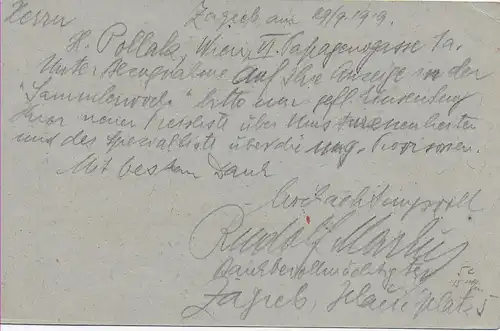 Herrn Zagreb, am 29/9.1919.
H. Pollak, Wien, VI. Capagenogasse 1a.
Unter Bezugnahme auf Ihre Anzeige in der
"Sammlerwoche" bitte um gefl. Einsendung
Ihrer neuen Preisliste über
und des Spezialliste über die ung. Provisorien.
Mit bestem Dank
hochachtungsvoll
Rudolf
Bankbevollmächtigter
Zagreb, platz 5